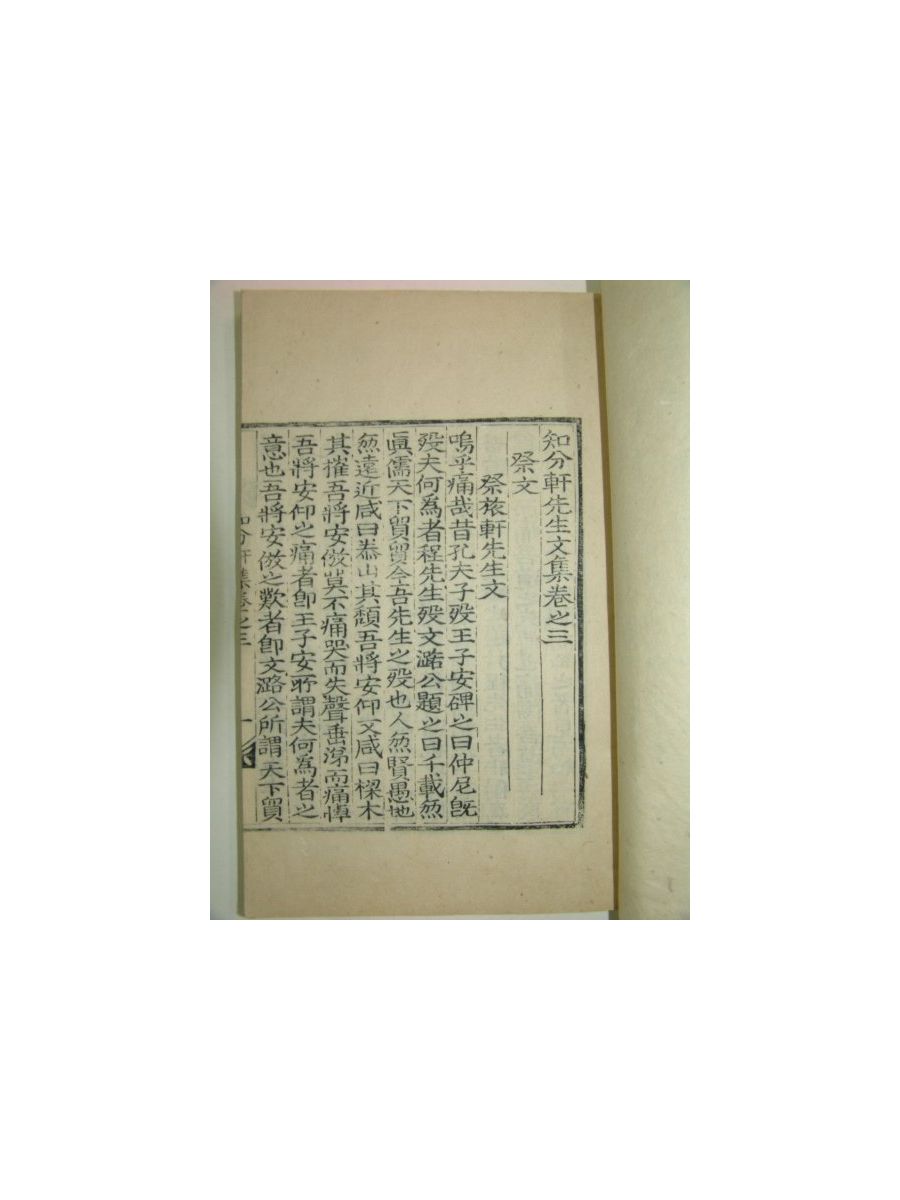 知分軒先生文集卷之三
祭文
祭旅軒先生文
嗚乎痛哉昔孔夫子歿王子安碑之曰仲尼旣
歿夫何爲者程先生歿文潞公題之曰千載無
眞儒天下貿貿今吾先生之歿也人無賢愚地
無遠近咸曰泰山其頹吾將安仰又咸曰樑木
其摧吾將安倣莫不痛哭而失聲垂涕而痛悼
吾將安仰之痛者卽王子安所謂夫何爲者之
意也吾將安倣之歎者卽文潞公所謂天下貿
知分軒集卷之三 一